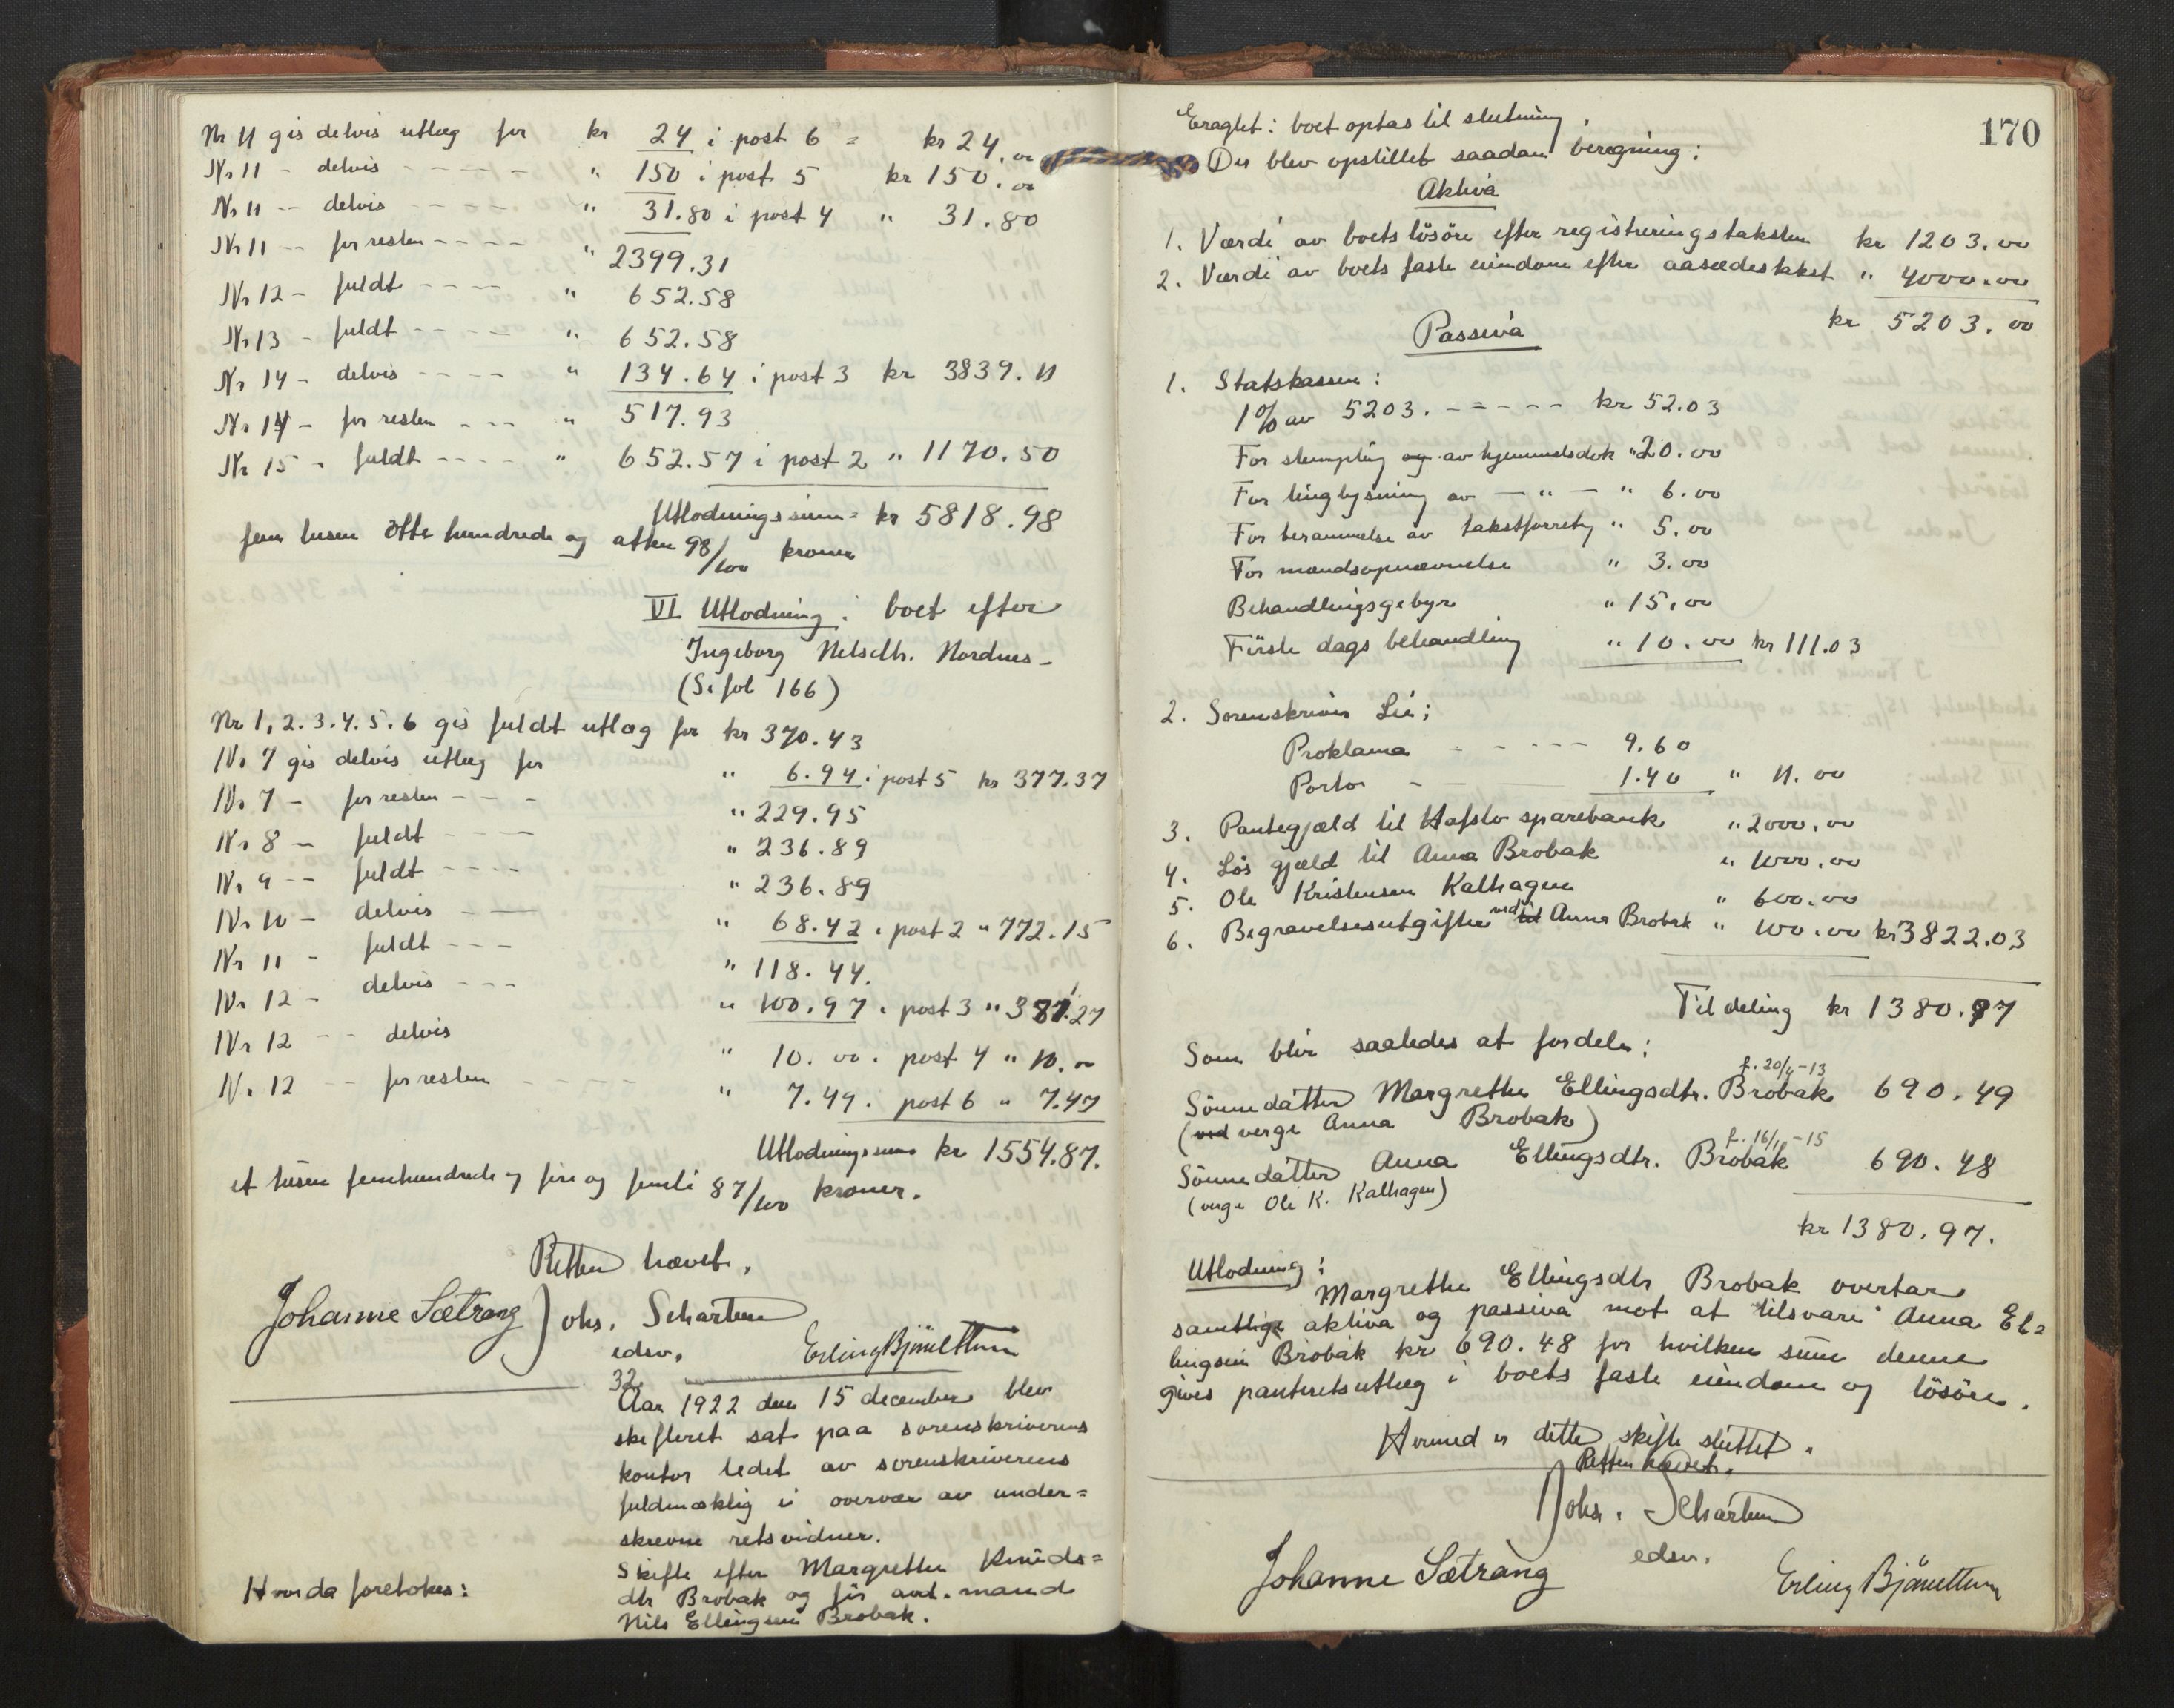 Nr 11 gis delvis utlæg for kr 24 i post 6 = kr 24.00
Nr 11 - delvis - - - - - " 150 i post 5 kr 150.00
Nr 11 -- delvis - - - - " 31.80 i post 4 " 31.80
Nr 11 -- for resten - - - - " 2399.31
Nr 12 - fuldt - - - - " 652.58
Nr 13 - fuldt - - - - " 652.58
Nr 14 - delvis - - - - " 134.64 i post 3 kr 3839.11
Nr 14 - for resten - - - " 517.93
Nr 15 - fuldt - - - - " 652.57 i post 2 " 1170.50
Utlodningssum = kr 5818.98
fem tusen otte hundrede og atten 98/100 kroner
VI Utlodning i boet efter
Ingeborg Nelsdtr. Nordnes -
(Se fol 166)
Nr 1, 2. 3. 4. 5. 6 gis fuldt utlæg for kr 370.43
Nr 7 gis delvis utlæg for " 6.94 i post 5 kr 377.37
Nr 7 - for resten - - - " 229.95
Nr 8 - fuldt - - - " 236.89
Nr 9 -- fuldt - - - - " 236.89
Nr 10 - delvis - - " 68.42 i post 2 " 772.15
Nr 11 - fuldt - - - " 118.44.
Nr 12 - delvis - - - " 100.97 i post 3 " 387.27
Nr 12 -- delvis " 10.00 i post 4 " 10.00
Nr. 12 -- for resten - - - - " 7.49 i post 6 " 7.47
Utlodningssum kr 1554.87.
et tusen femhundrede og fire og femti 87/100 kroner.
Retten hævet.
Johanne Sætrang Johs. Scharten
edsv. Erling Bjönettum
32.
Aar 1922 den 15 december blev
skifteret sat paa sorenskriverens
kontor ledet av sorenskriverens
fuldmæktig i overvær av under=
skrevne retsvidner.
Hvorda foretokes: Skifte efter Margrethe Knuds=
dtr Brobak og før avd. mand
Nils Ellingsen Brobak.
170
Eragtet: boet optas til slutning.
Der blev opstillet saadan beregning:
Aktiva
1. Værdi av boets lösöre efter registreringstaksten kr 1203.00
2. Værdi av boets faste eiendom efter aasædestakst " 4000.00
kr 5203.00
Passiva
1. Statskassen:
1% av 5203. - = - - - kr 52.03
For stempling og av hjemmelsdok " 20.00
For tinglysning av - " - " 6.00
For berammelse av takstforretg " 5.00
For mændsopnævnelse " 3.00
Behandlingsgebyr " 15.00
Förste dags behandling " 10.00 kr 111.03
2. Sorenskriver Lie:
Proklama - - - - - 9.60
Porto - 1.40 " 11.00
3. Pantegjæld til Hafslo sparebank " 2000.00
4. Lös gjæld til Anna Brobak " 1000.00
5. Ole Kristensen Kalhagen " 600.00
6. Begravelsesutgifter ved til Anna Brobak " 100.00 kr 3822.03
Til deling kr 1380.97
Som blir saaledes at fordele:
Sönnedatter Margrethe Ellingsdtr. Brobak f. 20/4-13 690.49
(ved verge Anna Brobak)
Sönnedatter Anna Ellingsdtr. Brobak f. 16/11-15 690.48
(verge Ole K. Kalhagen)
kr 1380.97.
Utlodning:
Margrethe Ellingsdtr Brobak overtar
samtlige aktiva og passiva mot at tilsvare Anna El=
lingsen Brobak kr 690.48 for hvilken sum denne
gives panteretsutlæg i boets faste eiendom og lösöre.
Hermed er dette skifte sluttet.
Retten hævet.
Johs. Scharten
edsv.
Johanne Sætrang Erling Bjönettum